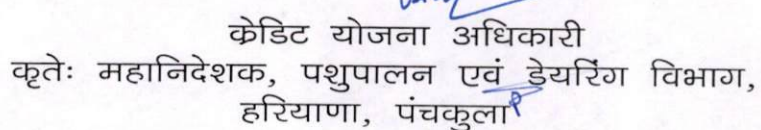 क्रेडिट योजना अधिकारी
कृतेः महानिदेशक, पशुपालन एवं डेयरिंग विभाग,
हरियाणा, पंचकुला